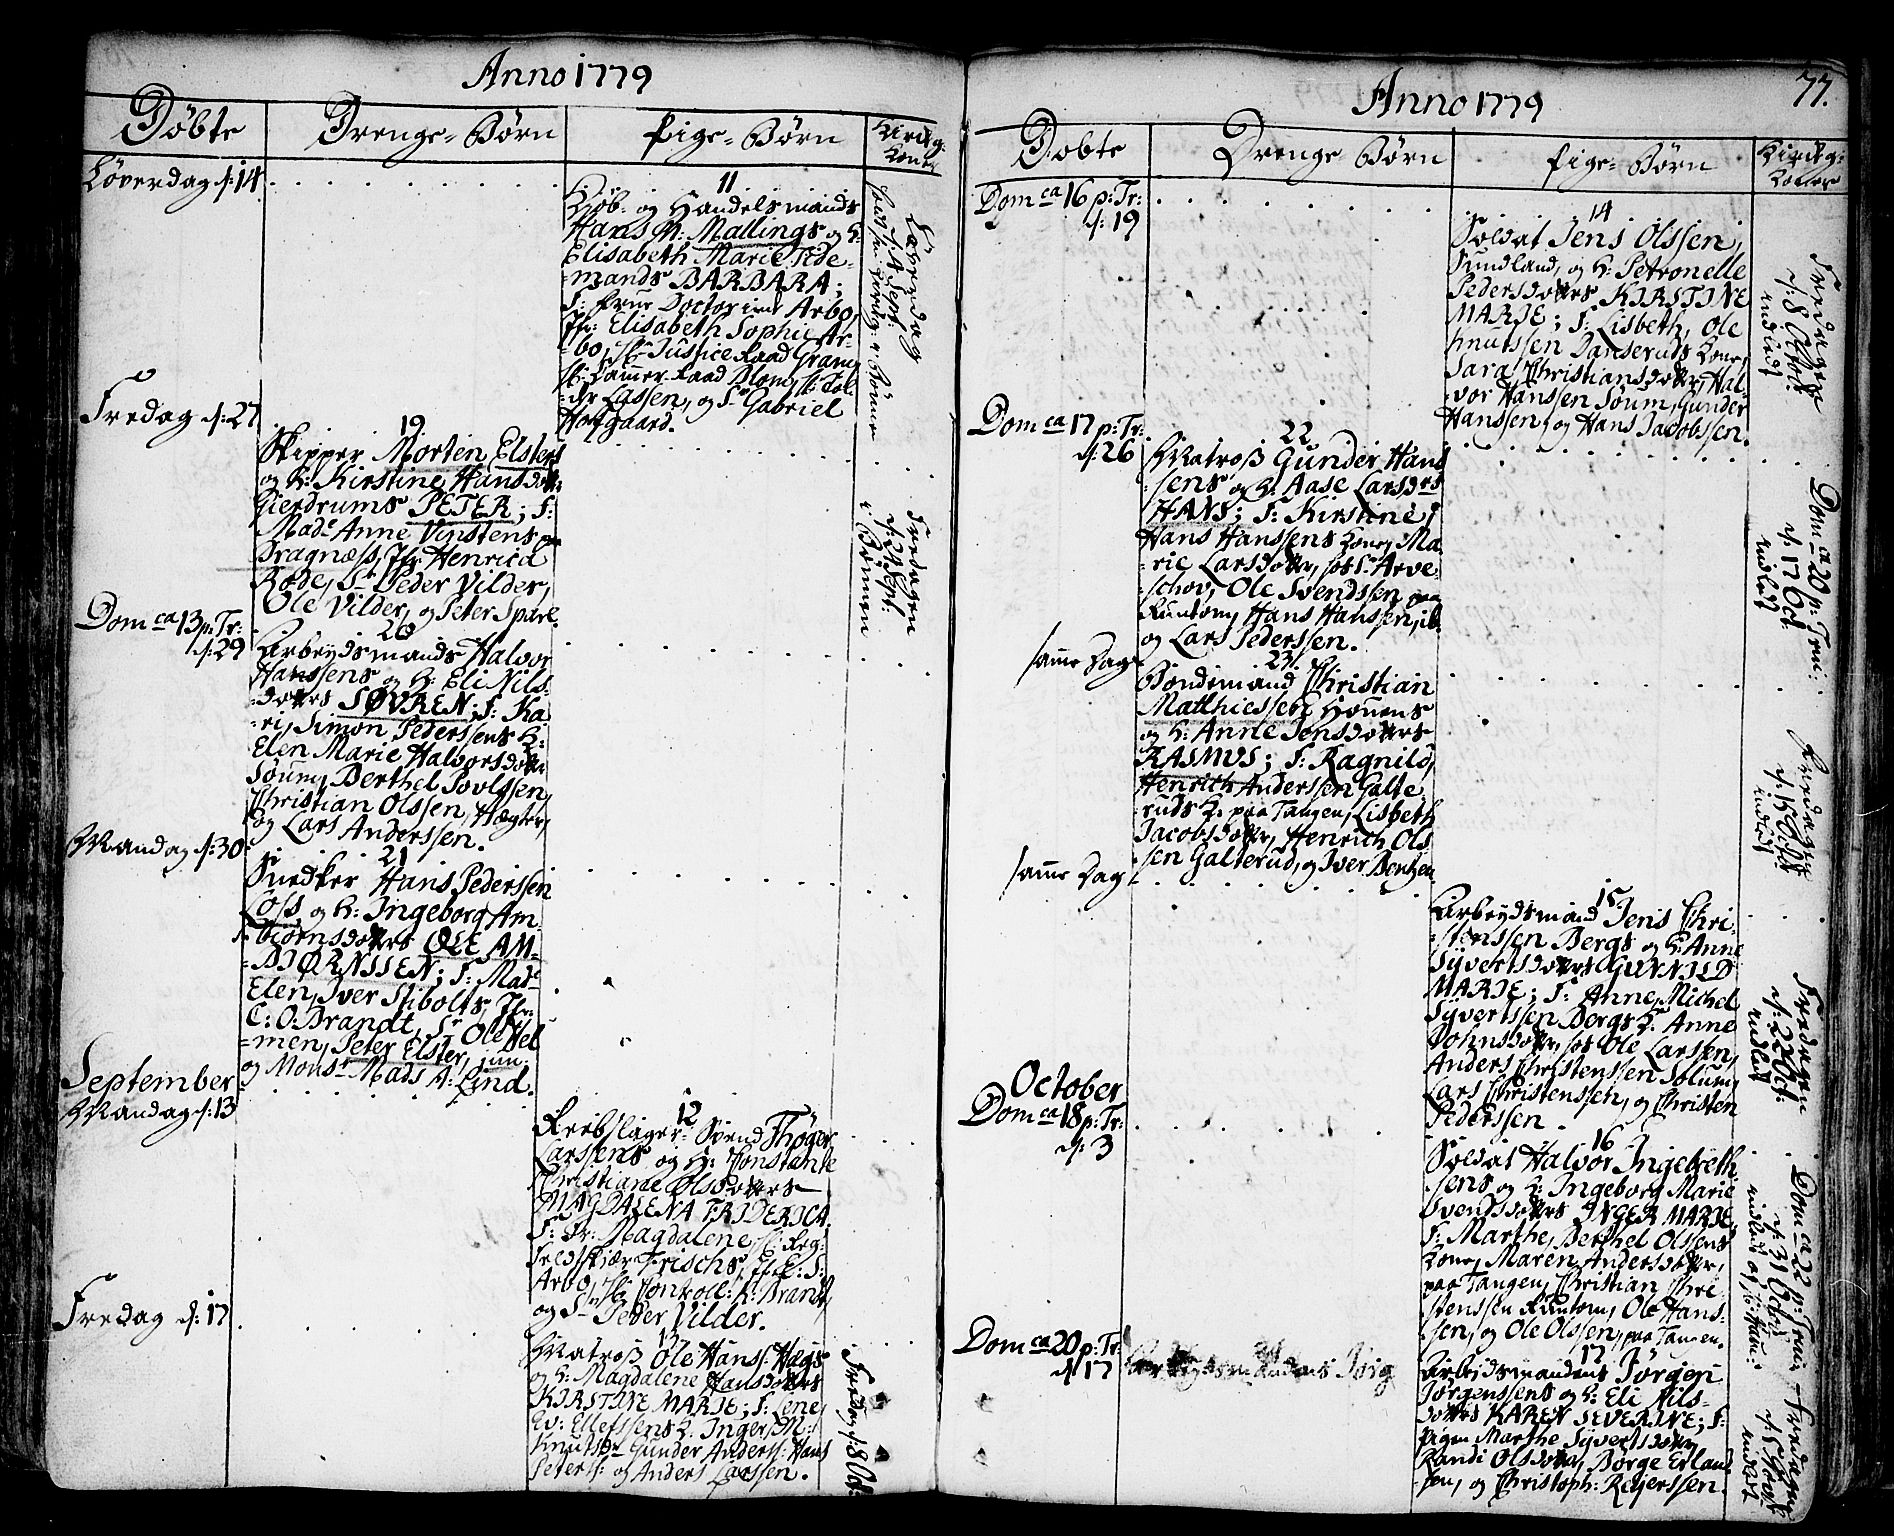 Anno 1779
Døbte
Drenge-Børn
Pige-Børn
Kirkeg:
Koner
Løverdag d: 14.
11
Kiøb- og Handelsmands
Hans P: Mallings og H:
Elisabeth Marie Tide-
-mands BARBARA;
F: Frue Doctor Arbo,
Jfr: Elisabeth Sophie Ar-
-bo, Hr Justice Raad Gram,
Hr: Cammer-Raad Blom,
Lassen, og Sr Gabriel
Hofgaard.
Løverdag
d: 4 Sept:
Fredag d: 27
19
Skipper Morten Elsters
og H: Kirstine Hansdotr
Gierdrums PETER; F:
Made Anne Vinstens paa
Tragnæss, Jfr Henrica
Rode, Sr Peder Vilder,
Ole Vilder, og Peter Sparl.
Fredagen
d: Sept:
i Bønnen
Domca 13 p: Tr:
d: 29
20
Arbeydsmands Halvor
Hanssens og H: Eli Nils-
-dotters SØVREN; F: Ka-
-ri, Simon Pederssens H:
Elen Marie Halvorsdotter
Søum, Berthel Povlssen,
Christian Olssen, Hægter,
og Lars Anderssen.
Mandag d: 30
21
Snedker Hans Pederssen
Loss og H: Ingeborg Am-
-biørnsdotters OLE AM-
-BIØRNSSEN; F: Made
Elen, Iver Stibolts, Jfr:
C: O: Brandt, Sr Ole Hel-
-men, Peter Elster, jun:
og Monsr Mads A: Lind.
September
Mandag d: 13
12
Reebslager-Svend Thøger
Larssens og H: Constante
Christiane Olsdotters
MAGDALENA FRIDERICA
F: Fr: Magdalene, Hr Reg:
Feldskiær Frischs,
Arbo, Hr Controll: K: Brandt,
og Sr Peder Vilder.
Fredag d: 17
13
Matros Ole Hanss: Hægs
og H: Magdalene Hansdotters
KIRSTINE MARIE; F: Lene
Ev: Ellefssens H: Inger M:
Knutsdr Gunder Anderss: Hans
Peterss: og Anders Larssen.
Fredag d: 8 Oct:
77.
Anno 1779
Døbte
Drenge Børn
Pige-Børn
Kirkeg:
Koner
Domca 16 p: Tr:
d: 19
14
Soldat Jens Olssen,
Sundland, og H: Petronelle
Pedersdotters KIRSTINE
MARIE; F: Lisbeth, Ole
Knutssen Danseruds Kone,
Sara Christiansdotter, Hal-
vor Hanssen Søum, Gunder
Hanssen, og Hans Jacobssen.
Fredagen
d: 8 Octob:
indledt
Domca 17 p: Tr:
d: 26
22
Matros Gunder Hans-
-sens og H: Aase Larsdrs
HANS; F: Kirstine,
Hans Hanssens Kone, Ma-
-rie Larsdotter, hos Sr Arve-
-schov, Ole Svendssen paa
Runtom, Hans Hanssen, ib.
og Lars Pederssen.
Domca 20 p: Trin:
d: 17 Oct:
indledt
samme Dag
23.
Bondemand Christian
Matthiessen Houens
og H: Anne Jensdotters
RASMUS; F: Ragnild,
Henrich Anderssen Galte-
-ruds H: paa Tangen, Lisbeth
Jacobsdotter, Henrich Ols-
-sen Galterud, og Iver Bentzen
Fredagen
d: 15 Oct:
indledt
samme Dag
15
Arbeydsmand Jens Chri-
-stenssen Bergs og H: Anne
Syvertsdotters GUNNILD
MARIE; F: Anne, Michel
Syvertssen Bergs H: Anne
Johnsdotter, hos Ole Larssen,
Anders Christenssen Solum,
Lars Christenssen, og Christen
Pederssen.
Fredagen
d: 22 Oct:
indledt
October
Domca 18 p: Tr:
d: 3
16
Soldat Halvor Ingebreth-
-sens og H: Ingeborg Marie
Svendsdotters INGER MARIE,
F: Marthe, Berthel Olssens
Kone, Maren Andersdotter,
paa Tangen, Christian Chri-
-stenssen Runtom, Ole Hans-
-sen, og Ole Olssen, paa Tangen.
Domca 22 p: Trin:
d: 31 Octobr
indledt og
Domca 20 p: Tr:
d. 17
17
Arbeidsmandens Jørgen
Jørgenssens og H: Eli Nils-
-dotters KAREN SEVERINE; F:
Pigen Marthe Syvertsdotter,
Randi Olsdotter, Børge Erland-
-sen, og Christoph: Reyerssen.
Fredagen
indledt